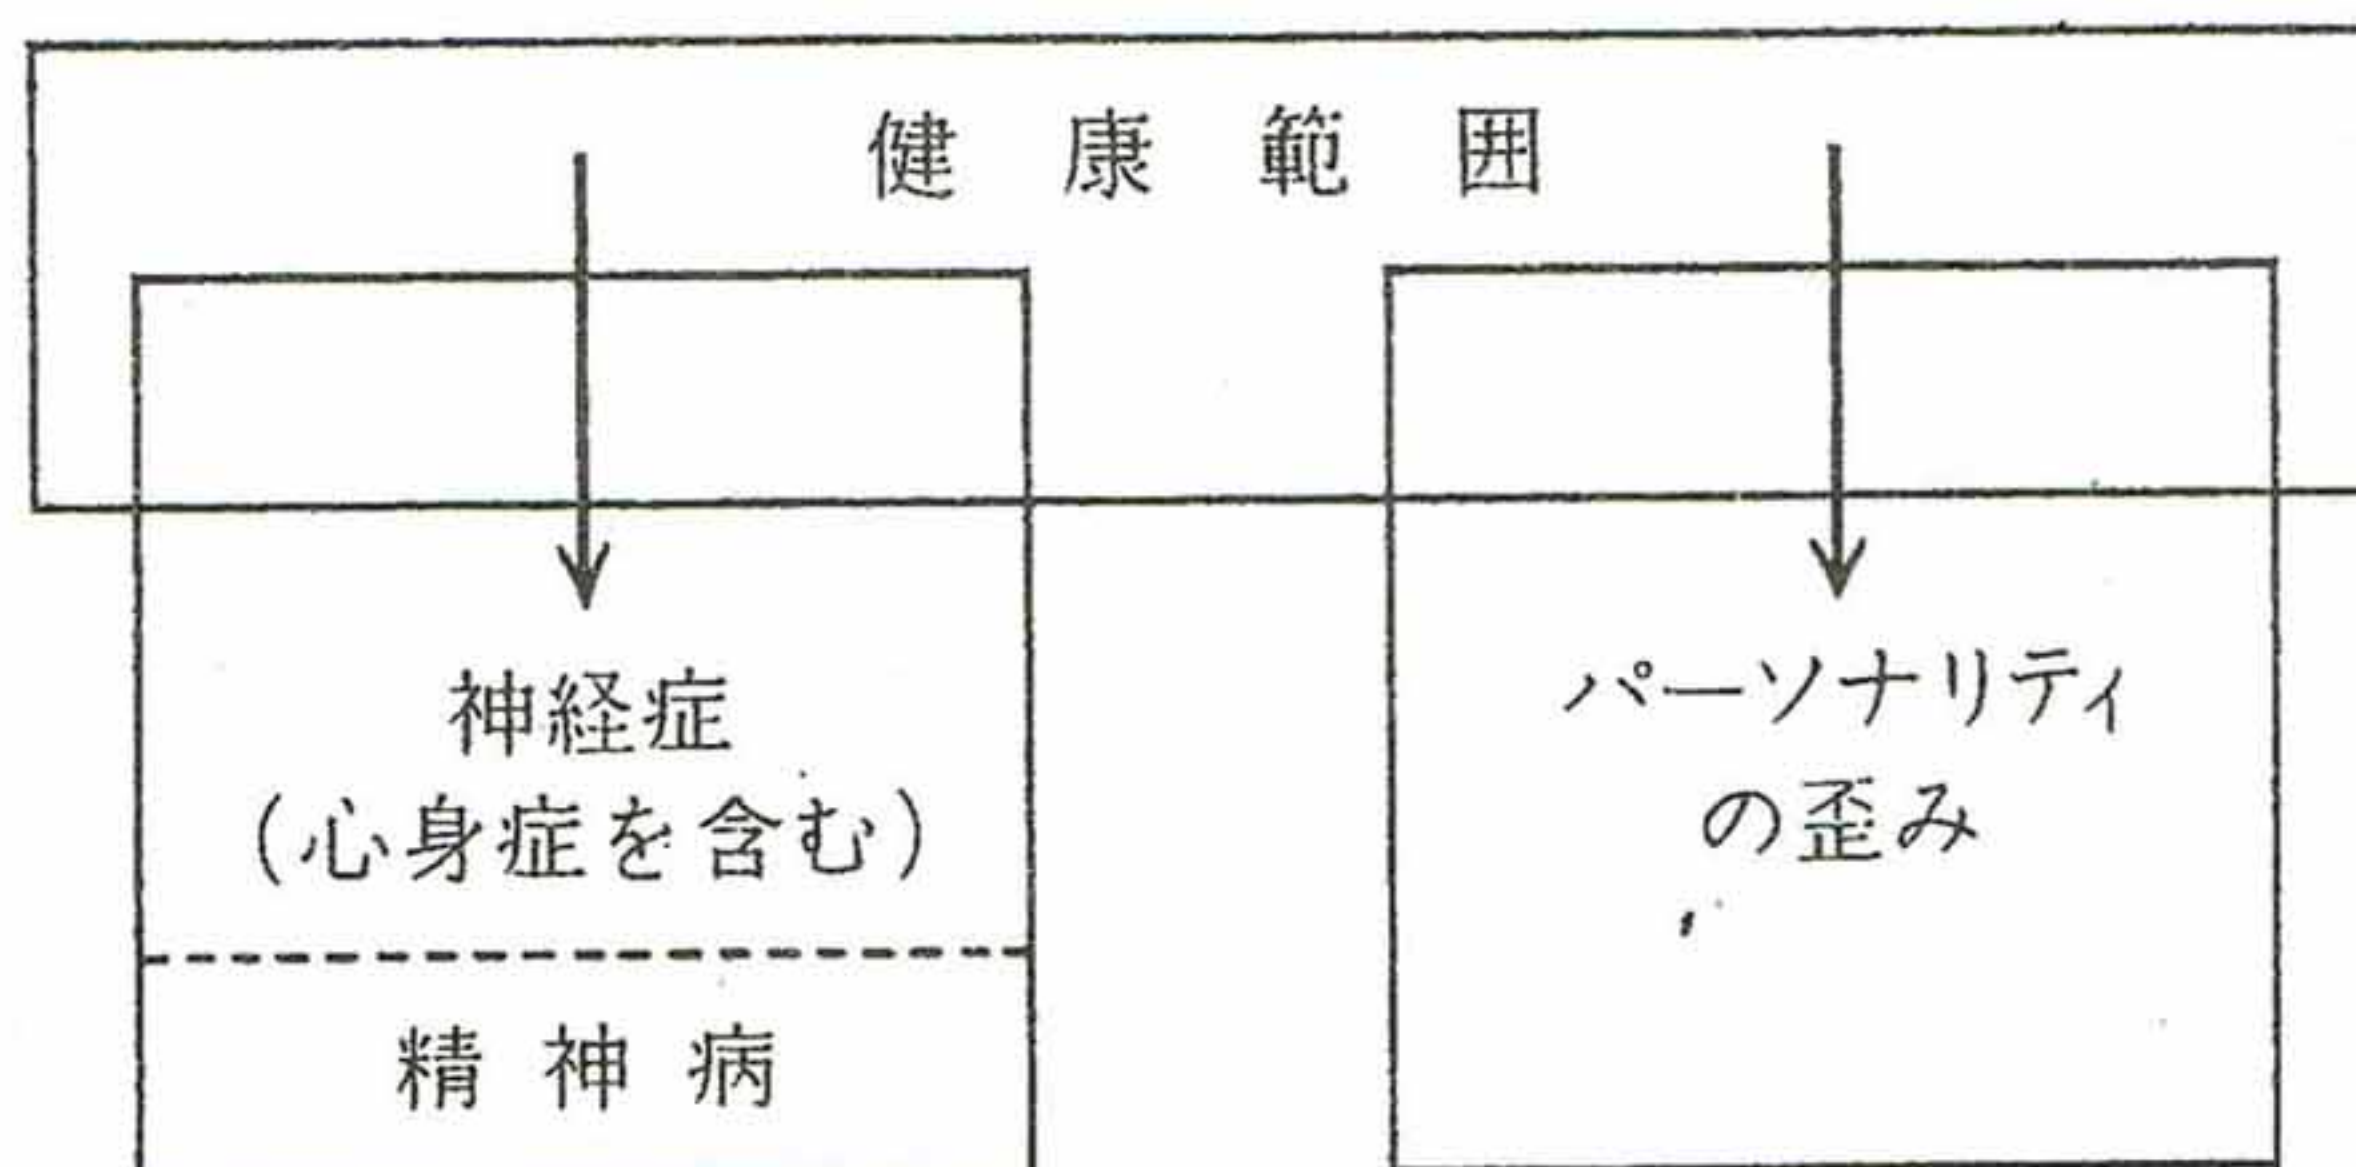 健康範囲
神経症
(心身症を含む)
精神病
パーソナリティ
の歪み